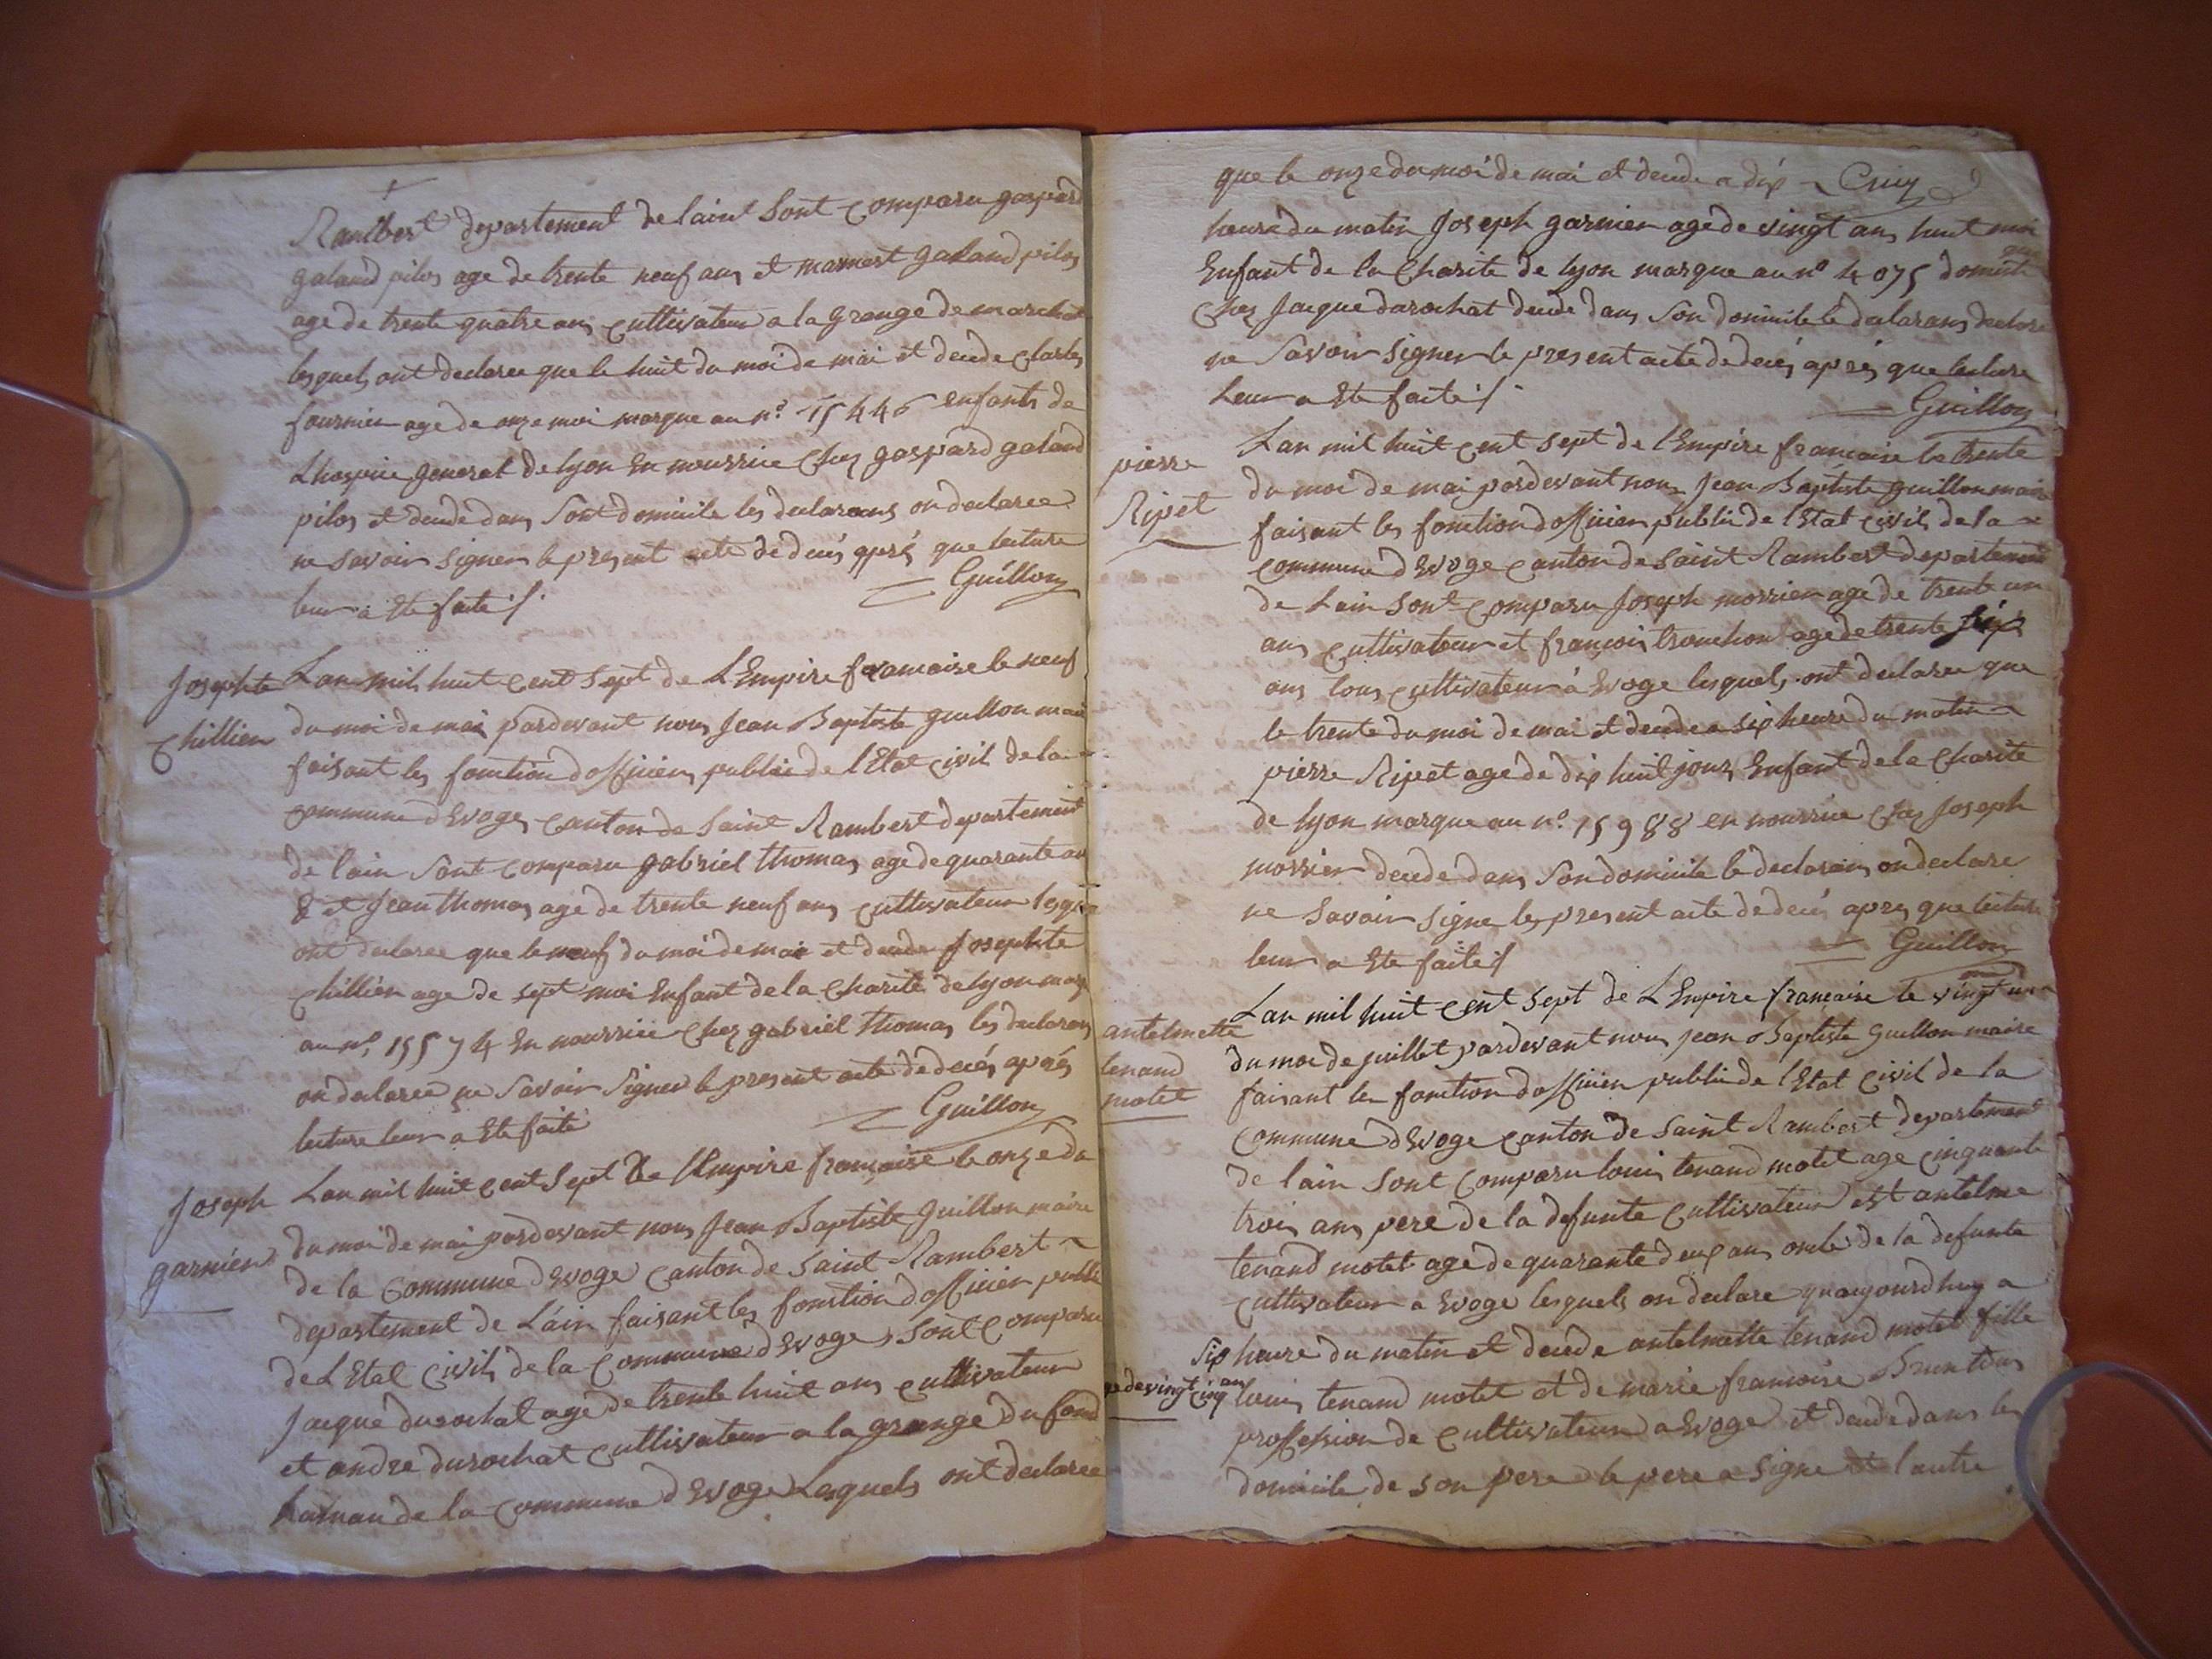 Rambert departement de laint Sont Comparu gaspard
galand pilos age de trente neuf ans et mamert galand pilos
age de trente quatre ans Cultivateur a la grange de marchat
lesquels ont declaree que le huit du moi de mai et decede Charles
fournier age de onze moi marque au n.º 15446 enfants de
Lhospice general de lyon En nourrice Chez gaspard galand
pilos et decede dans Sont domicile les declarans on declaree
ne savoir signer le present acte de decés aprés que lecture
leur a Ete faite /.
Guillon
Josephte
Chillien
Lan mil huit Cent Sept de L'Empire francaise le neuf
du moi de mai pardevant nous Jean Baptiste guillon maire
faisant les fonction dofficier public de l'Etat Civil de la
Commune dEvoges Canton de Saint Rambert departement
de lain Sont Comparu gabriel thomas age de quarante ans
& et Jean thomas age de trente neuf ans Cultivateur lesquels
ont declaree que le neuf du moi de mai et decede Josephte
Chillien age de sept moi Enfant de la Charité de lyon marque
au nº. 15574 En nourrice Chez gabriel thomas les declarans
on declaree ne Savoir Signer le present acte de decés aprés
lecture leur a Ete faite
Guillon
Joseph
garnier
Lan mil huit Cent Sept de lEmpire française le onze du
du moi de mai pardevant nous Jean Baptiste Guillon maire
de la Commune dEvoge Canton de Saint Rambert
departement de Lain faisant les fonction dofficier public
de L'Etat Civil de la Commune dEvoge Sont Comparu
Jacque durochat age de trente huit ans Cultivateur
et andre durochat Cultivateur a la grange du fond
hamau de la Commune dEvoge Lesquels ont declaree
que le onze du moi de mai et decede a dix
heure du matin Joseph garnier age de vingt ans huit moi
Enfant de la Charite de lyon marque au nº 4075 domestique
Chez Jacque durochat decede dans Son domicile le declarans declare
ne Savoir Signer le present acte de decés aprés que lecture
Leur a Ete faite /.
Guillon
pierre
Ripet
Lan mil huit Cent Sept de l'Empire francaise le trente
du moi de mai pardevant nous Jean Baptiste guillon maire
faisant les fonction dofficier public de l'Etat Civil de la
Commune dEvoge Canton de Saint Rambert departement
de Lain Sont Comparu Joseph morrier age de trente un
ans Cultivateur et francois trouchon age de trente six
ans tous Cultivateur á Evoge lesquels ont declaree que
le trente du moi de mai et decede a six heure du matin
pierre Ripet age de dix huit jours Enfant de la Charité
de lyon marque au nº. 15988 en nourrice Chez Joseph
morrier decede dans Son domicile le declarans on declare
ne Savoir Signe le present acte de decés apres que lecture
leur a Ete faite /
Guillon
antelmette
tenand
motet
Lan mil huit Cent Sept de L'Empire francaise le vingt un
du moi de juillet pardevant nous Jean Baptiste Guillon maire
faisant les fonction dofficier public de l'Etat Civil de la
Commune dEvoge Canton de Saint Rambert departement
de lain Sont Comparu louis tenand motet age Cinquante
trois ans pere de la defunte Cultivateur est antelme
tenand motet age de quarante deux ans oncle de la defunte
Cultivateur a Evoge lesquels on declare quaujourdhuy a
Six heure du matin et decede antelmette tenand motet fille
age de vingt Cinq ans
louis tenand motet et de marie francoise Brun tous
proffession de Cultivateur a Evoge et decede dans le
domicile de son pere le pere a Signe et lautre